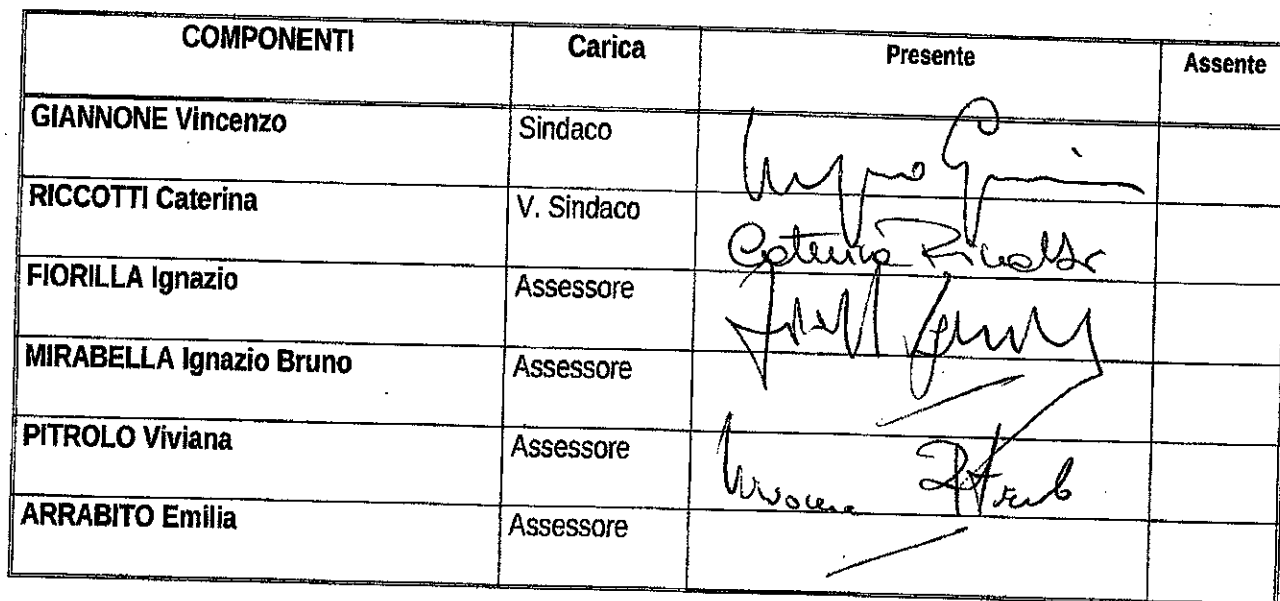 COMPONENTI Carica Presente Assente
GIANNONE Vincenzo Sindaco
RICCOTTI Caterina V. Sindaco Caterina Riccotti
FIORILLA Ignazio Assessore
MIRABELLA Ignazio Bruno Assessore
PITROLO Viviana Assessore Viviana Pitrolo
ARRABITO Emilia Assessore